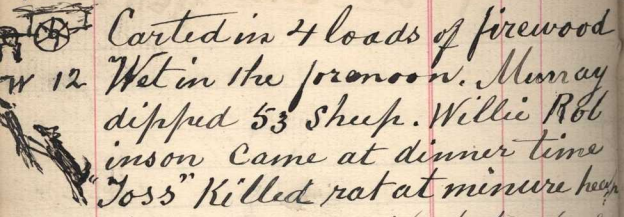 Carted in 4 loads of firewood
W 12 Wet in the forenoon. Murray
dipped 53 sheep. Willie Rob
inson came at dinner time
"Toss" Killed rat at minure heap